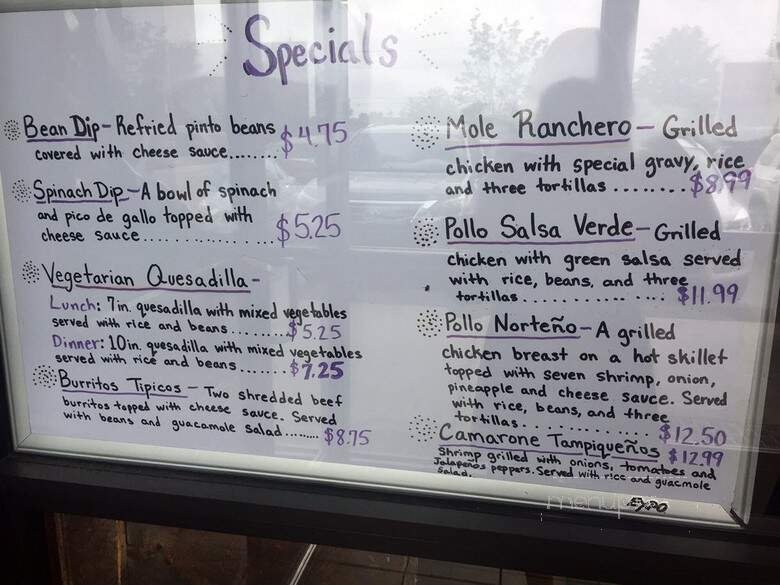 Specials
Bean Dip- Refried pinto beans
covered with cheese sauce........ $4.75
Spinach Dip-A bowl of spinach
and pico de gallo topped with
cheese sauce................... $5.25
Vegetarian Quesadilla-
Lunch: 7in. quesadilla with mixed vegetables
served with rice and beans......... $5.25
Dinner: 10in. quesadilla with mixed vegetables
served with rice and beans........ $7.25
Burritos Tipicos - Two shredded beef
burritos topped with cheese sauce. Served
with beans and guacamole salad........ $8.75
Mole Ranchero - Grilled
chicken with special gravy, rice
and three tortillas .......... $8.99
Pollo Salsa Verde- Grilled
chicken with green salsa served
with rice, beans, and three
tortillas.................. $11.99
Pollo Norteño - A grilled
chicken breast on a hot skillet
topped with seven shrimp, onion,
pineapple and cheese sauce. Served
with rice, beans, and three
tortillas............... $12.50
Camarone Tampiqueños $12.99
Shrimp grilled with onions, tomatoes and
Jalapeños peppers. Served with rice and guacmole
Salad.